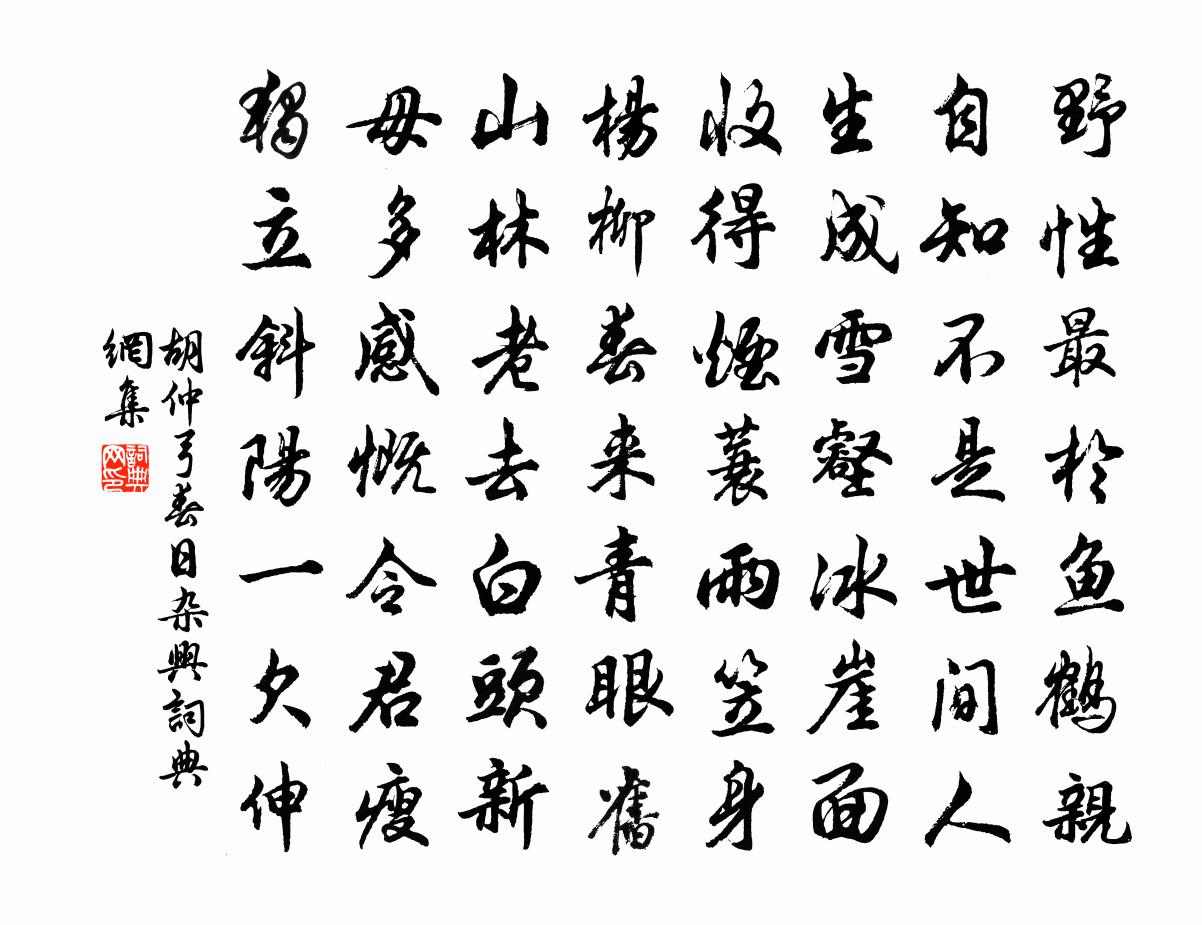 野性最於魚鶴親
自知不是世間人
生成雪壑冰崖面
收得煙蓑雨笠身
楊柳春来青眼舊
山林老去白頭新
毋多感慨令君瘦
獨立斜陽一欠伸
胡仲弓春日杂興詞典
網集
詞典网印